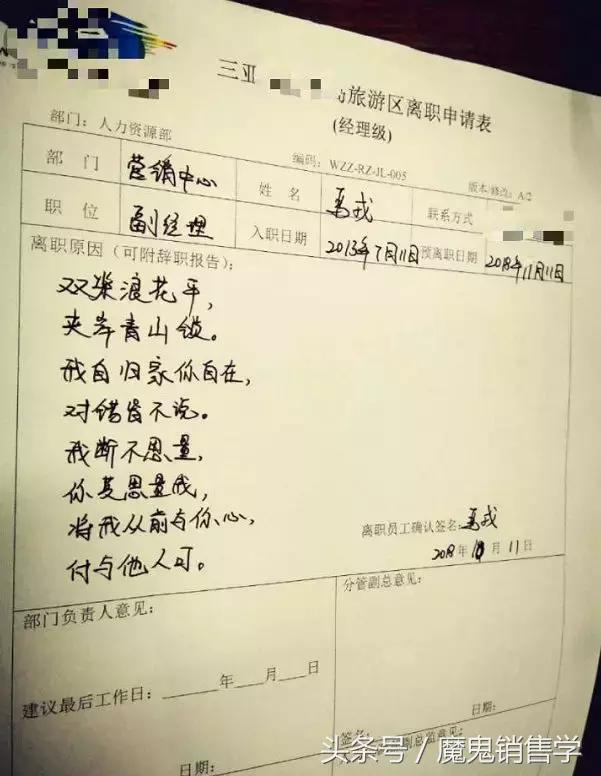 三亚
旅游区离职申请表
(经理级)
部门：人力资源部
编码：WZZ-RZ-JL-005
版本/修改：A/2
部 门 营销中心 姓 名 联系方式
职 位 副经理 入职日期 2013年7月11日 预离职日期 2018年11月11日
离职原因（可附辞职报告）：
双桨浪花平，
夹岸青山锁。
我自归家你自在，
对错皆不说。
我断不思量，
你莫思量我，
将我从前与你心，
付与他人可。
离职员工确认签名：
2018年10月11日
部门负责人意见：
分管副总意见：
建议最后工作日：____年____月____日
日期：
日期：
签名：
副总监意见：
头条号 / 魔鬼销售学